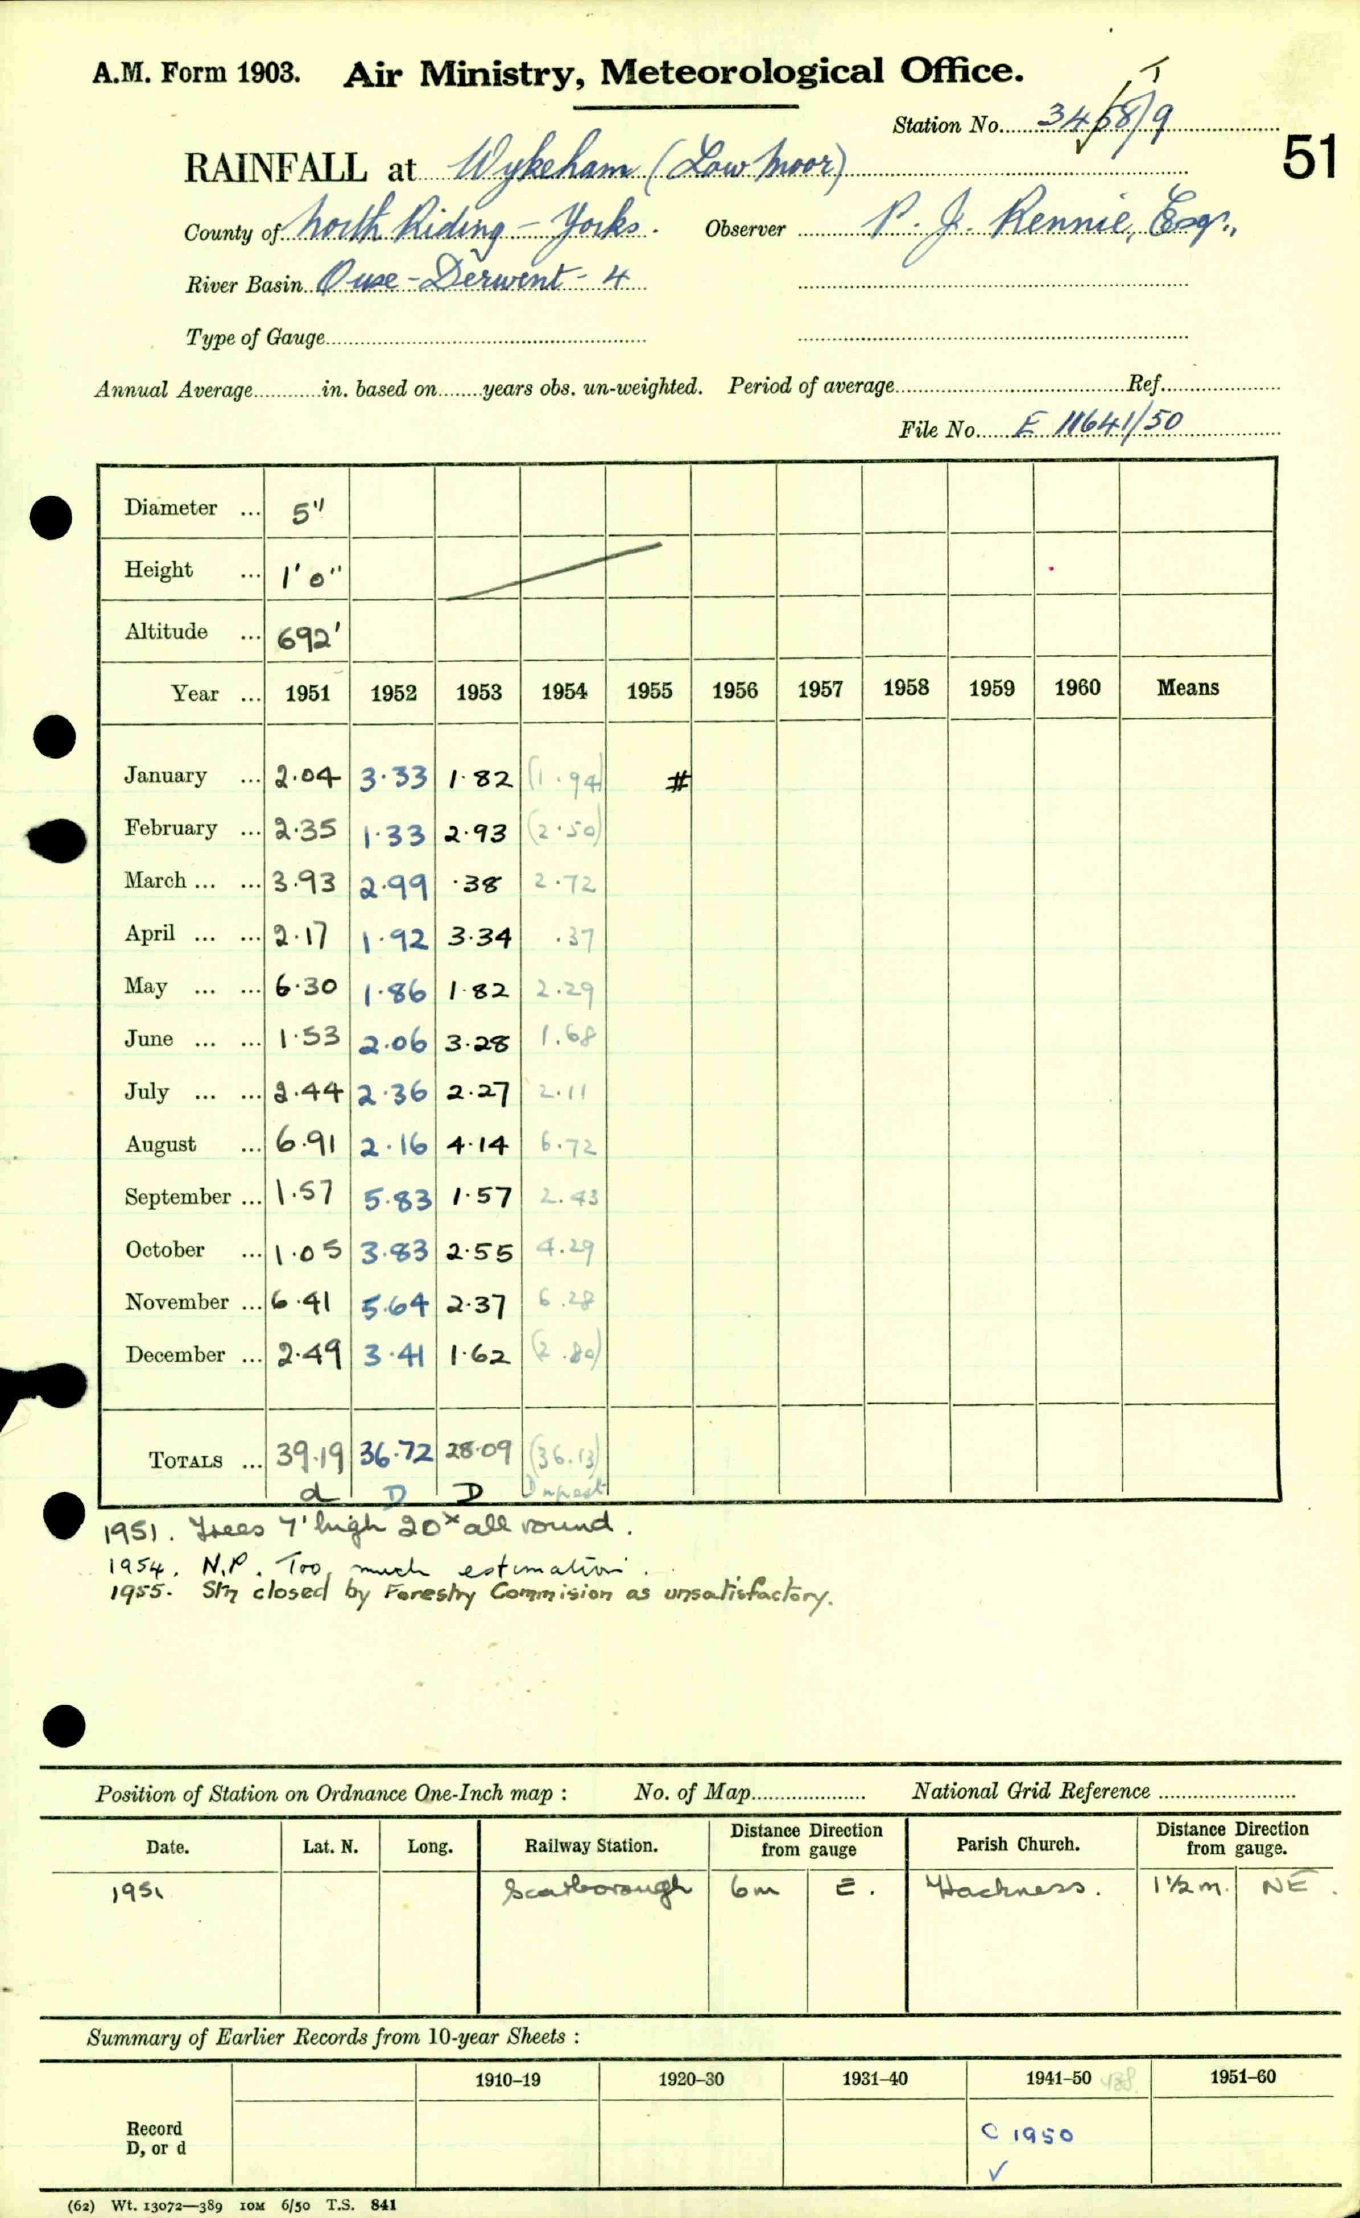 A.M. Form 1903. Air Ministry, Meteorological Office.
Station No. 3458/9
51
RAINFALL at Wykeham (Low Moor)
County of North Riding - Yorks. Observer P. J. Rennie, Esq.,
River Basin Ouse - Derwent - 4
Type of Gauge
Annual Average in. based on years obs. un-weighted. Period of average Ref.
File No. E 11641/50
Diameter ... 5"
Height ... 1' 0"
Altitude ... 692'
Year ... 1951 1952 1953 1954 1955 1956 1957 1958 1959 1960 Means
January ... 2.04 3.33 1.82 (1.94) #
February ... 2.35 1.33 2.93 (2.50)
March ... ... 3.93 2.99 .38 2.72
April ... ... 2.17 1.92 3.34 .37
May ... ... 6.30 1.86 1.82 2.29
June ... ... 1.53 2.06 3.28 1.68
July ... ... 2.44 2.36 2.27 2.11
August ... 6.91 2.16 4.14 6.72
September ... 1.57 5.83 1.57 2.43
October ... 1.05 3.83 2.55 4.29
November ... 6.41 5.64 2.37 6.28
December ... 2.49 3.41 1.62 (2.80)
TOTALS ... 39.19 36.72 28.09 (36.13)
d D D
1951. Trees 7' high 20x all round.
1954. N.P. Too much estimation.
1955. Stn closed by Forestry Commision as unsatisfactory.
Position of Station on Ordnance One-Inch map : No. of Map National Grid Reference
Date. Lat. N. Long. Railway Station. Distance Direction from gauge Parish Church. Distance Direction from gauge.
1951 Scarborough 6m E. Hackness. 1½m. NE.
Summary of Earlier Records from 10-year Sheets :
1910–19 1920–30 1931–40 1941–50 1951–60
Record
D, or d
C 1950
✓
(62) Wt. 13072—389 10M 6/50 T.S. 841